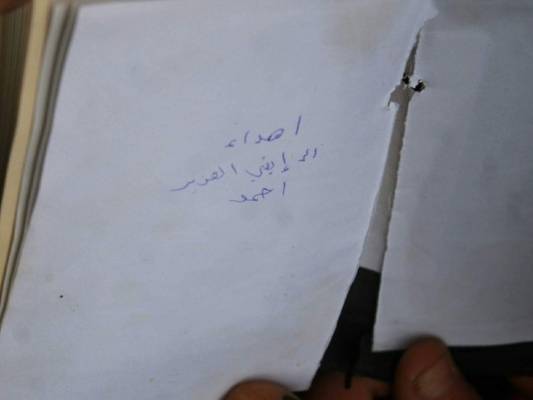 اهداء
إلى إبني العزيز
احمد